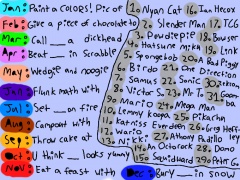 Jan: Paint a COLORS! Pic of
Feb: Give a piece of chocolate to
Mar: Call a dickhead
Apr: Beat in Scrabble
May: Wedgie and noogie
Jun: Flunk math with
Jul: Set on fire
Aug: Campout with
Sep: Throw cake at
Oct: U think looks yummy
Nov: Eat a feast with
Dec: Bury in snow
1. Nyan Cat
2. Slender Man
3. Pewdiepie
4. Hatsune miku
5. Spongebob
6. Birdo
7. Samus
8. Victor S.
9. Mario
10. Lemmy koopa
11. Katniss Everdeen
12. Wario
13. Nikki
14. Dr. Octorock
15. Squidward
16. Ian Hecox
17. TCG
18. Bowser
19. Link
20. A Rad Piggy
21. One Direction
22. Sonic
23. Mr T
24. Mega Man
25. Pikachu
26. Greg Heff
27. Anthony Padilla
28. Domo
29. Peter G.
30.
31. Goomba